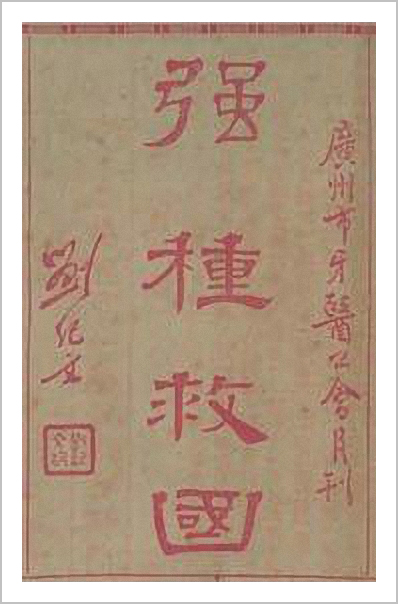 廣州市牙醫公會月刊
强種救國
劉紀文